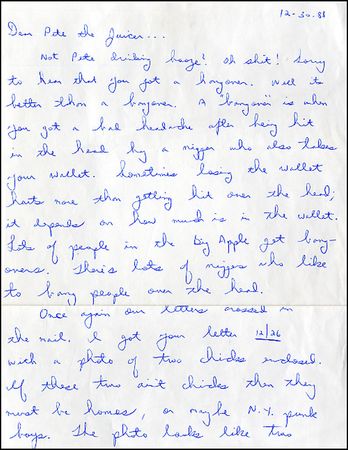 12-30-88
Dear Pete the Juicer...
Not Pete drinking booze! Oh shit! Sorry
to hear that you got a hangover. Well it
better than a bangover. A "bangover" is when
you got a bad headache after being hit
in the head by a nigger who also takes
your wallet. Sometimes losing the wallet
hurts more than getting hit over the head;
it depends on how much is in the wallet.
Lots of people in the Big Apple get bang-
overs. There's lots of niggers who like
to bang people over the head.
Once again our letters crossed in
the mail. I got your letter 12/26
with a photo of two chicks enclosed.
If these two ain't chicks then they
must be homos, or maybe N.Y. punk
boys. The photo looks like two